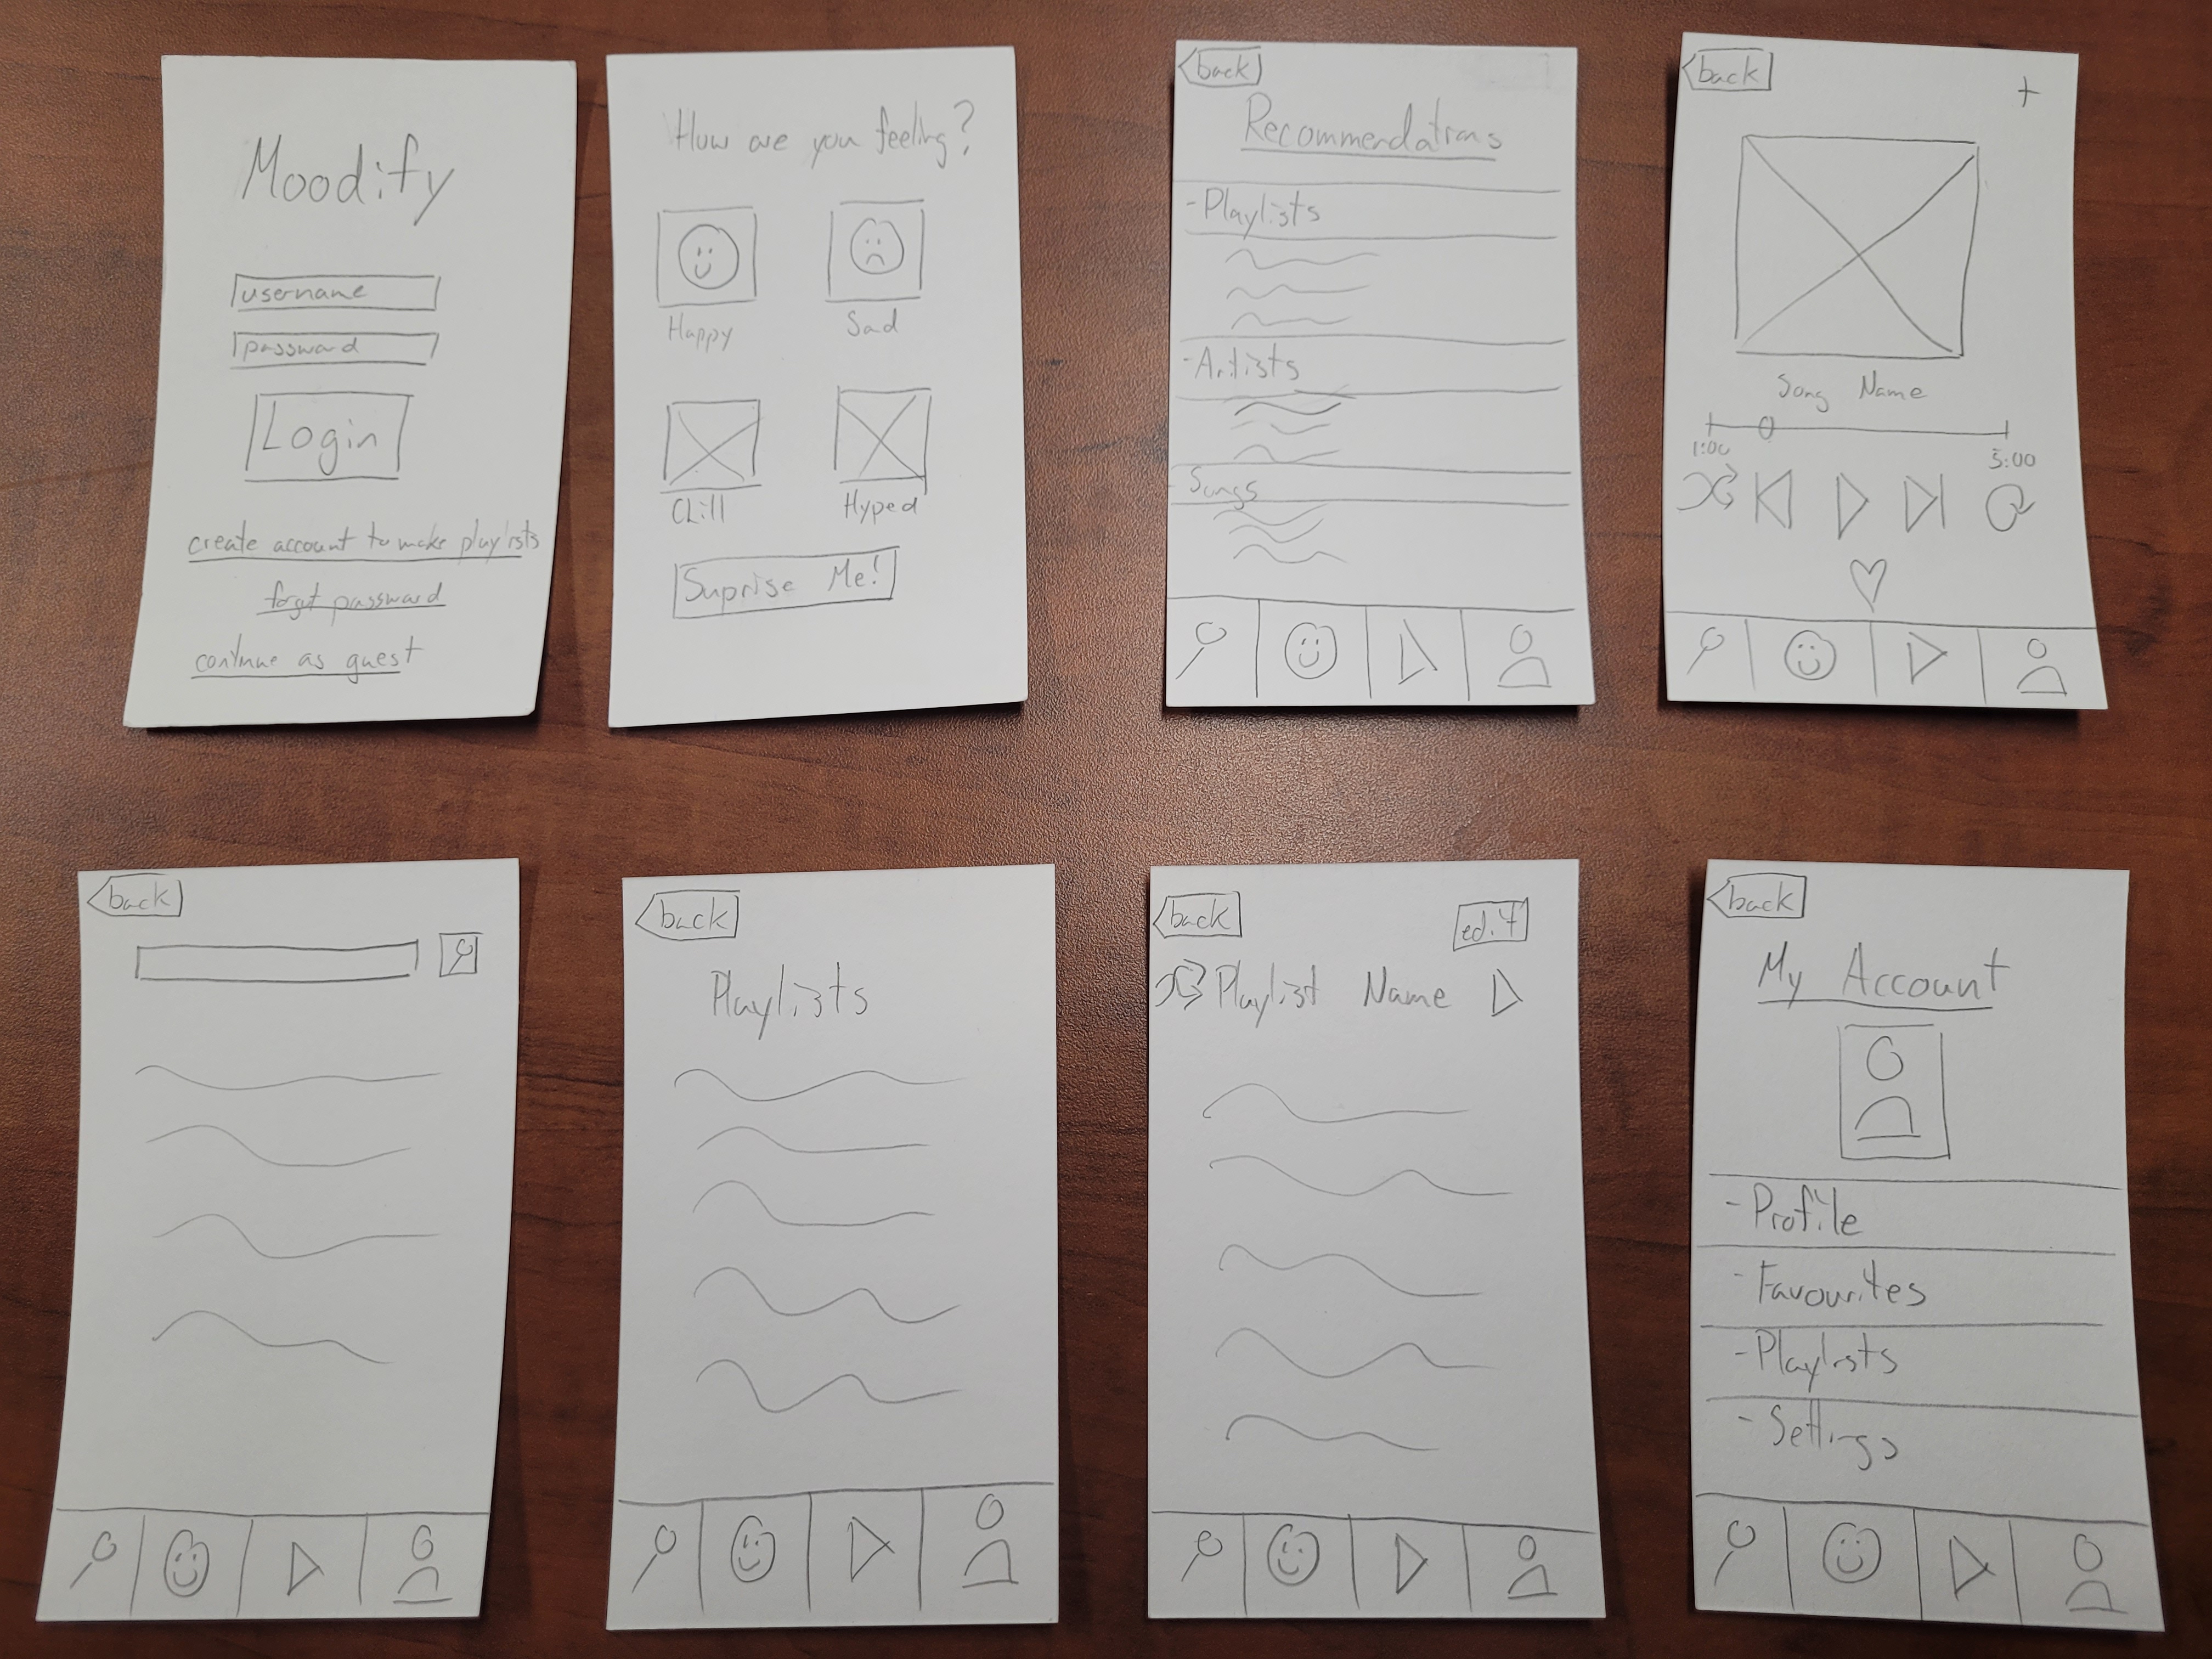 Moodify
username
password
Login
create account to make playlists
forgot password
continue as guest
How are you feeling?
Happy
Sad
Chill
Hyped
Suprise Me!
back
Recommendations
-Playlists
-Artists
Songs
back
+
Song Name
1:00
3:00
back
back
Playlists
back
edit
Playlist Name
back
My Account
-Profile
-Favourites
-Playlists
-Settings